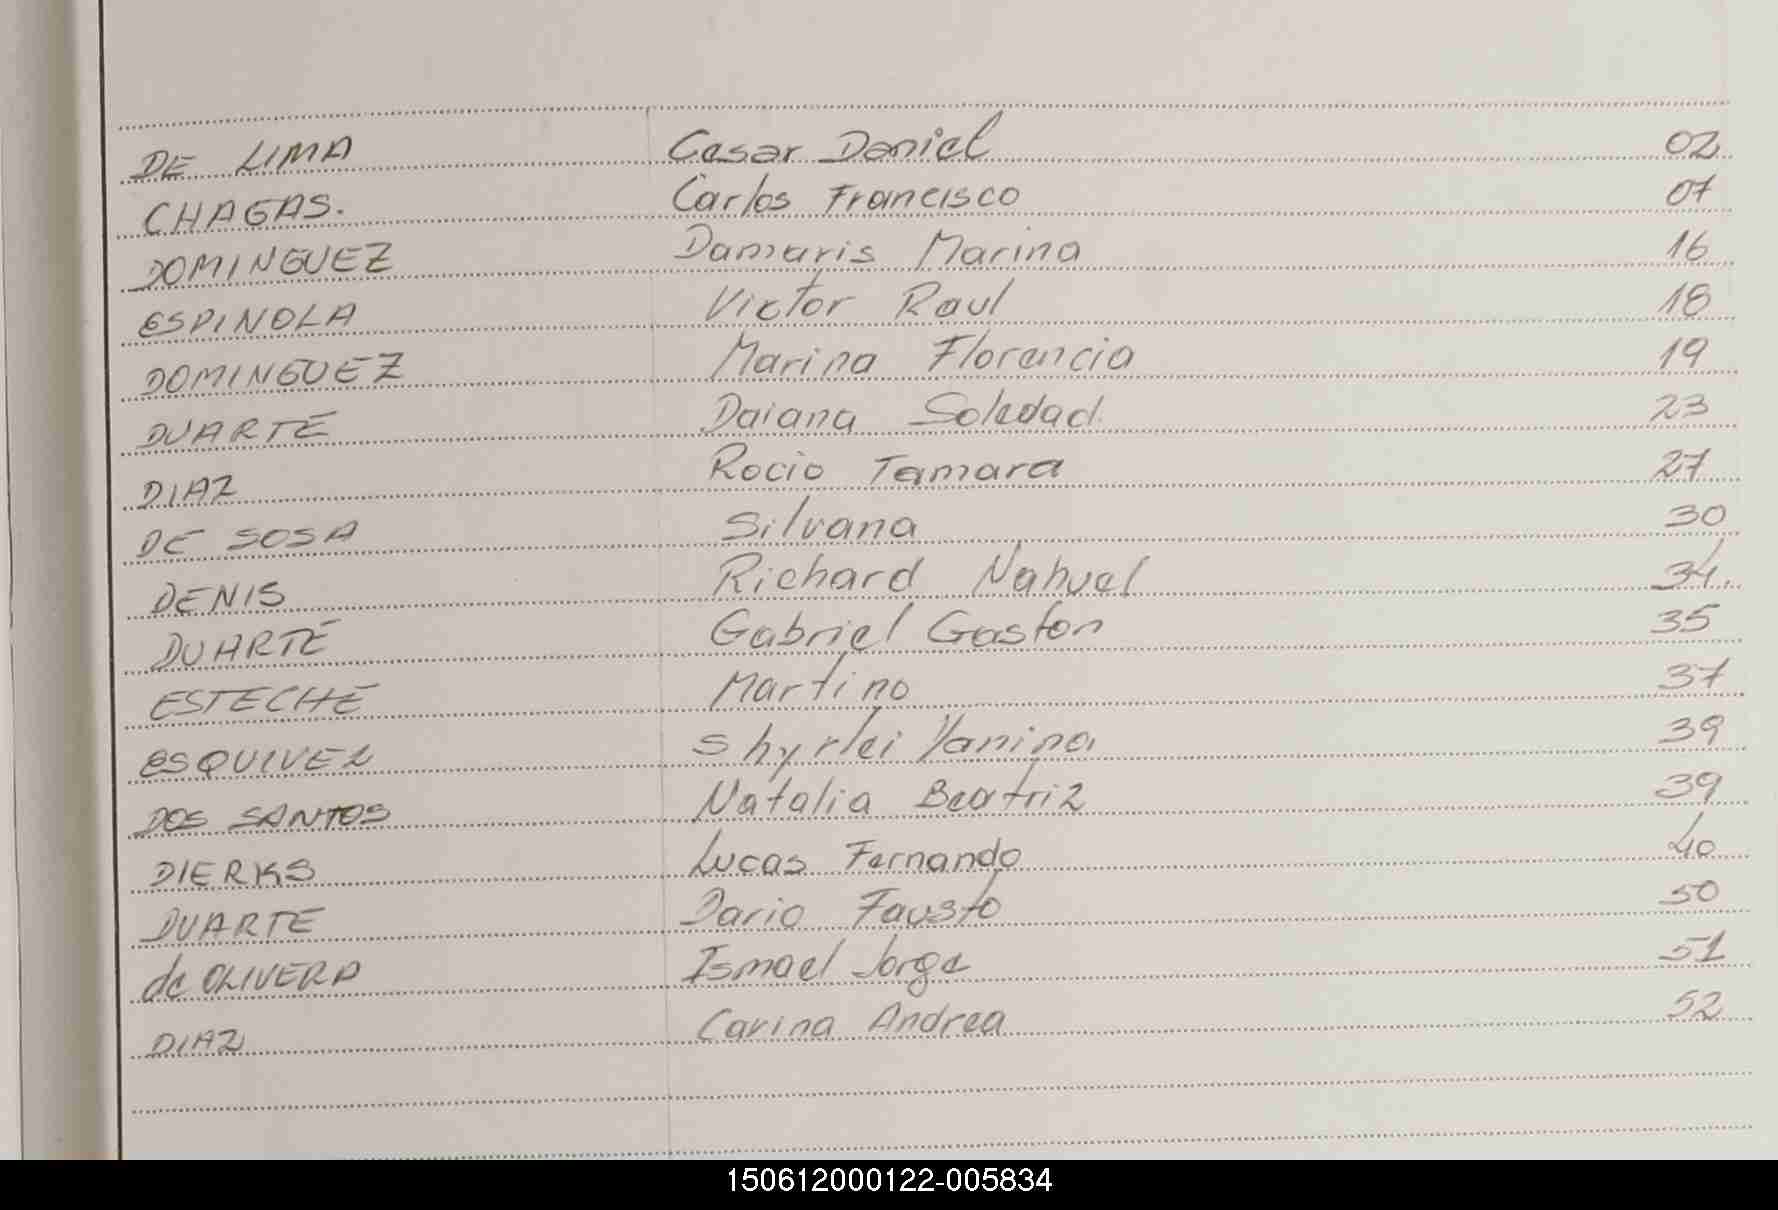 DE LIMA Cesar Daniel 02
CHAGAS. Carlos Francisco 07
DOMINGUEZ Damaris Marina 16
ESPINOLA Victor Raul 18
DOMINGUEZ Marina Florencia 19
DUARTE Daiana Soledad. 23
DIAZ Rocio Tamara 27
DE SOSA Silvana 30
DENIS Richard Nahuel 34.
DUARTE Gabriel Gaston 35
ESTECHE Martino 37
ESQUIVEL Shyrlei Yanina 39
DOS SANTOS Natalia Beatriz 39
DIERKS Lucas Fernando 40
DUARTE Dario Fausto 50
de OLIVERA Ismael Jorge 51
DIAZ Carina Andrea 52
150612000122-005834